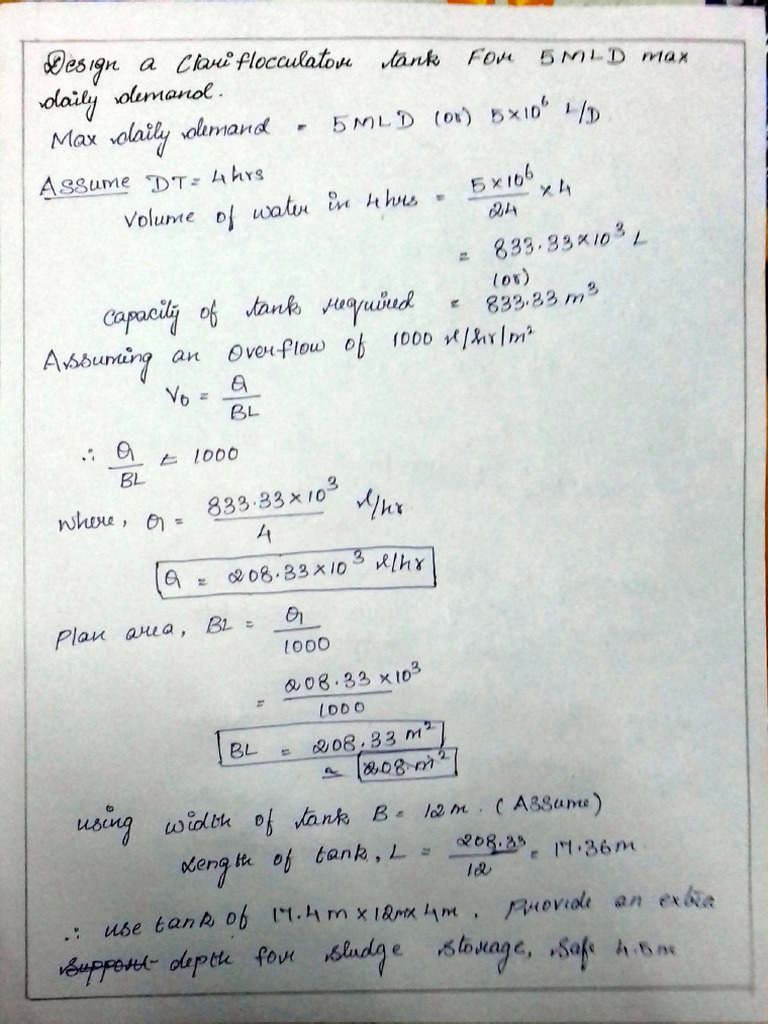 Design a Clariflocculator tank For 5 MLD max
daily demand.
Max daily demand = 5 MLD (or) 5×10⁶ L/D.
Assume DT = 4 hrs
Volume of water in 4 hrs = 5×10⁶/24 × 4
= 833.33×10³ L
(or)
Capacity of tank required = 833.33 m³
Assuming an overflow of 1000 l/hr/m²
V₀ = Q/BL
∴ Q/BL = 1000
where, Q = 833.33×10³/4 l/hr
Q = 208.33×10³ l/hr
Plan area, BL = Q/1000
= 208.33×10³/1000
BL = 208.33 m²
≃ 208 m²
using width of tank B = 12 m. (Assume)
Length of tank, L = 208.33/12 = 17.36 m.
∴ use tank of 17.4m × 12m × 4m. Provide an extra
support depth for sludge storage, 4.5m